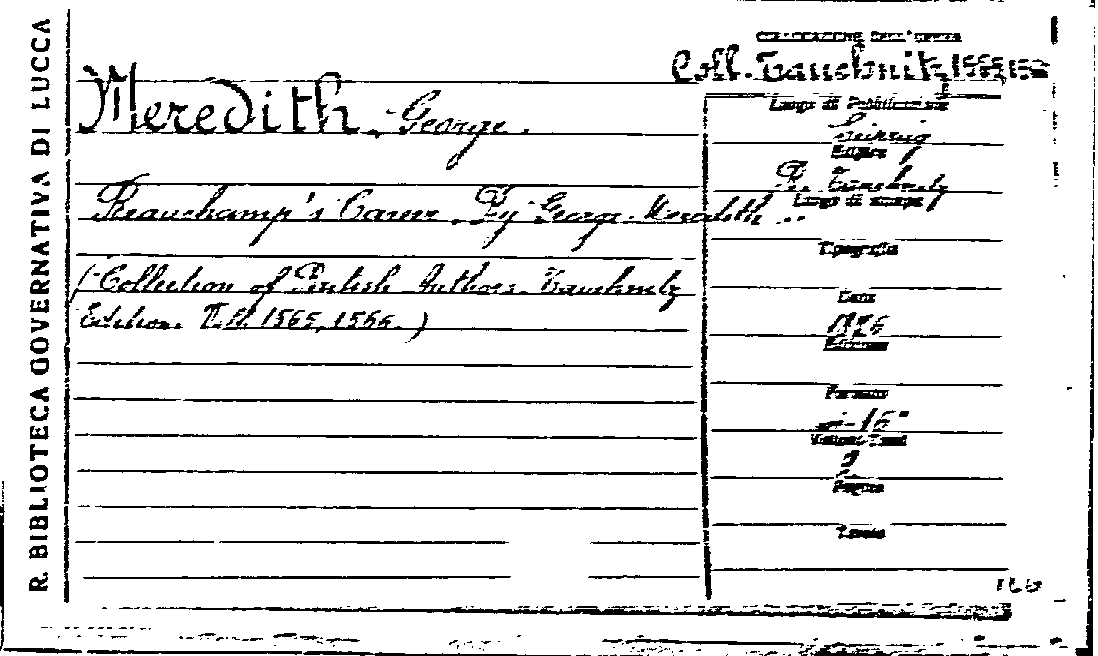 R. BIBLIOTECA GOVERNATIVA DI LUCCA
COLLOCAZIONE DELL'OPERA
Coll. Tauchnitz 1565,
Meredith, George.
Beauchamp's Career. By George Meredith ..
(Collection of British Authors. Tauchnitz
Edition. 1565, 1566.)
Luogo di Pubblicazione
Leipzig
Editore
B. Tauchnitz
Luogo di stampa
Tipografia
Data
1876
Edizione
Formato
in-16°
Volumi Tomi
2
Pagine
Tavole